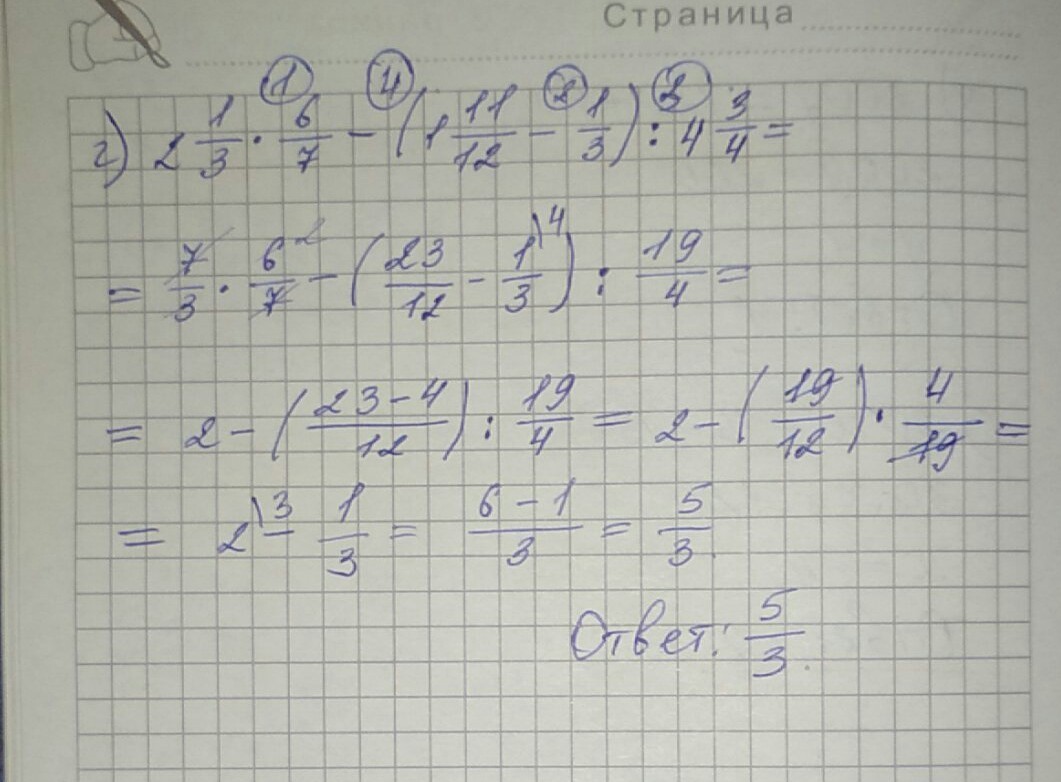 Страница
① ④ ② ③
г) 2 1/3 · 6/7 − (1 11/12 − 1/3) : 4 3/4 =
= 7/3 · 6/7 ² − (23/12 − 1/3 \4) : 19/4 =
= 2 − ((23−4)/12) : 19/4 = 2 − (19/12) · 4/19 =
= 2 \3 − 1/3 = (6−1)/3 = 5/3.
Ответ: 5/3.